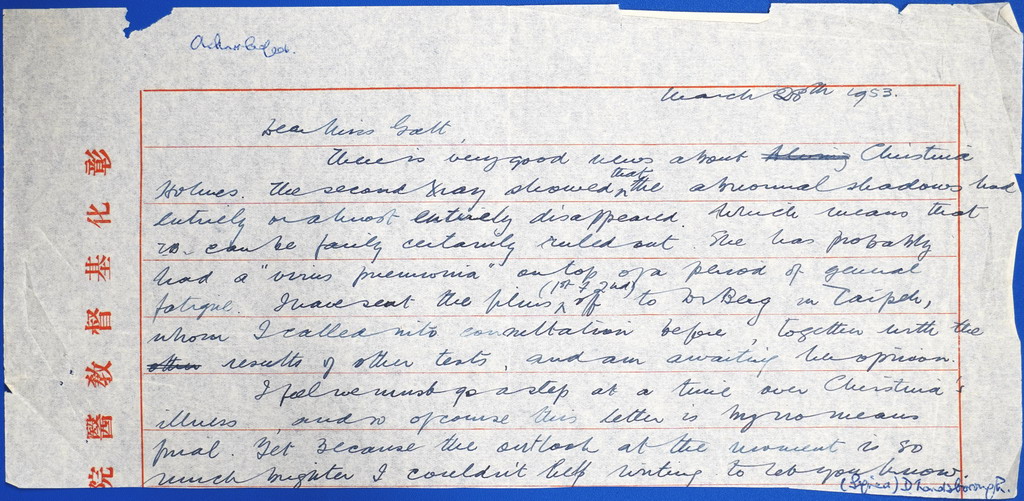 Acknowledged.
March 28th 1953.
Dear Miss Gatt,
There is very good news about Christina
Holmes. The second Xray showed that the abnormal shadows had
entirely or almost entirely disappeared which means that
TB. can be fairly certainly ruled out. She has probably
had a "virus pneumonia" on top of a period of general
fatigue. I have sent the films (1st & 2nd) off to Dr Berg in Taipeh,
whom I called into consultation before, together with the
other results of other tests, and am awaiting her opinion.
I feel we must go a step at a time over Christina's
illness, and so of course this letter is by no means
final. Yet because the outlook at the moment is so
much brighter I couldn't help writing to let you know.
(Signed) D Landsborough.
彰化基督教醫院